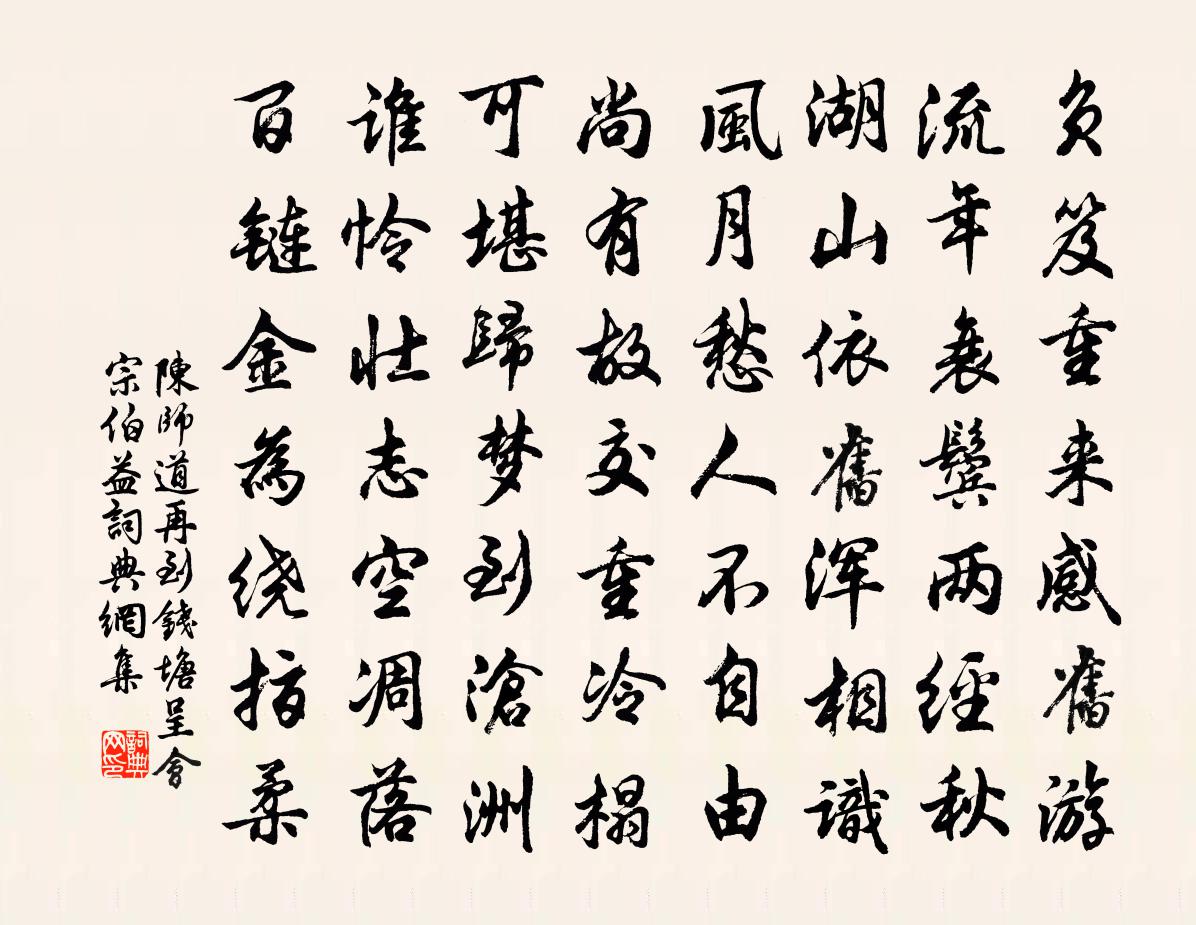 负笈重来感舊游
流年衰鬓两經秋
湖山依舊浑相識
風月愁人不自由
尚有故交重冷榻
可堪歸梦到滄洲
谁怜壮志空凋落
百鏈金為绕指柔
陳師道再到錢塘呈會
宗伯益詞典網集
詞典网印